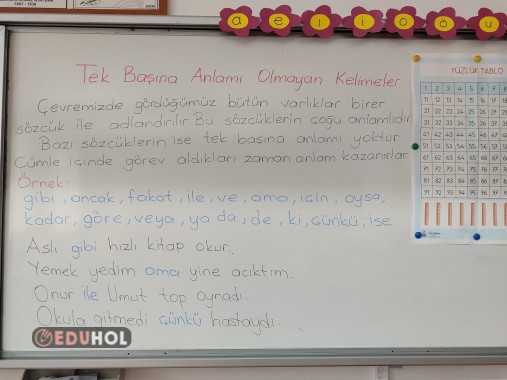 a e ı i o ö u
Tek Başına Anlamı Olmayan Kelimeler
Çevremizde gördüğümüz bütün varlıklar birer
sözcük ile adlandırılır. Bu sözcüklerin çoğu anlamlıdır.
Bazı sözcüklerin ise tek başına anlamı yoktur.
Cümle içinde görev aldıkları zaman anlam kazanırlar.
Örnek:
gibi, ancak, fakat, ile, ve, ama, için, oysa,
kadar, göre, veya, ya da, de, ki, çünkü, ise
Aslı gibi hızlı kitap okur.
Yemek yedim ama yine acıktım.
Onur ile Umut top oynadı.
Okula gitmedi çünkü hastaydı.
EDUHOL
YÜZLÜK TABLO
1 2 3 4 5 6 7 8
11 12 13 14 15 16 17 18
21 22 23 24 25 26 27 28
31 32 33 34 35 36 37 38
41 42 43 44 45 46 47 48
51 52 53 54 55 56 57 58
61 62 63 64 65 66 67 68
71 72 73 74 75 76 77 78
81 82 83 84 85 86 87 88
91 92 93 94 95 96 97 98